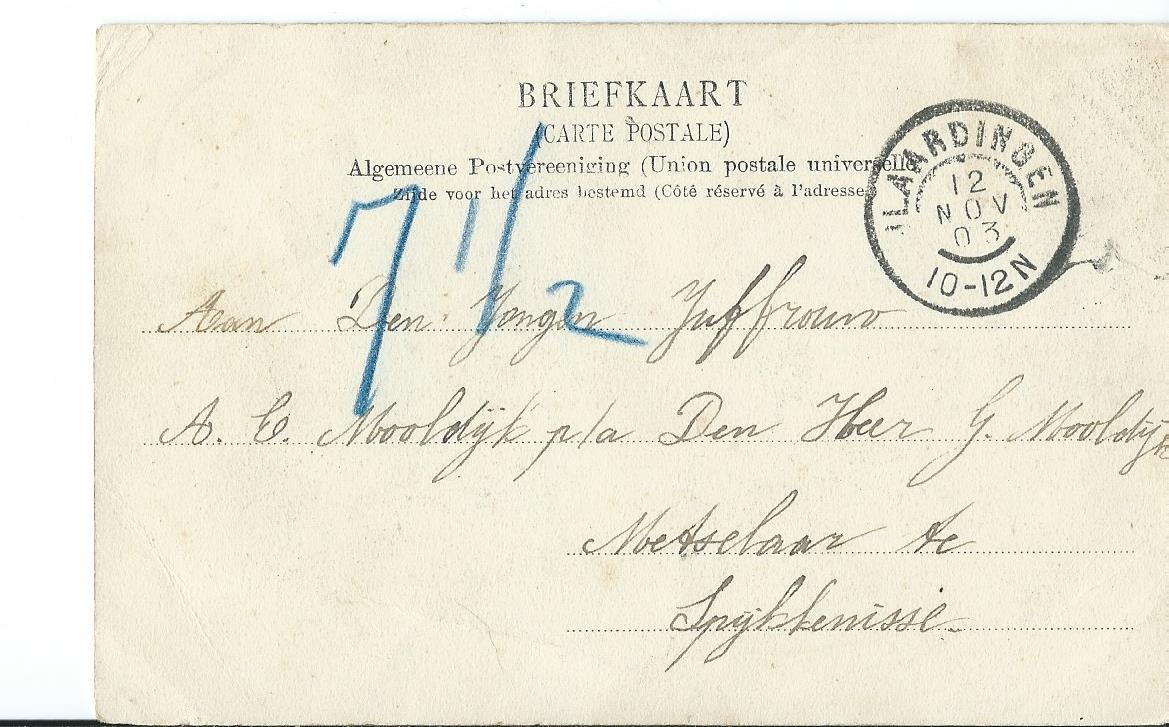 BRIEFKAART
(CARTE POSTALE)
Algemeene Postvereeniging (Union postale universelle)
Zijde voor het adres bestemd (Côté réservé à l'adresse)
VLAARDINGEN
12
NOV
03
10-12N
7 1/2
Aan Den Jongen Juffrouw
A. C. Mooldijk p/a Den Heer G. Mooldijk
Metselaar te
Spijkkenisse